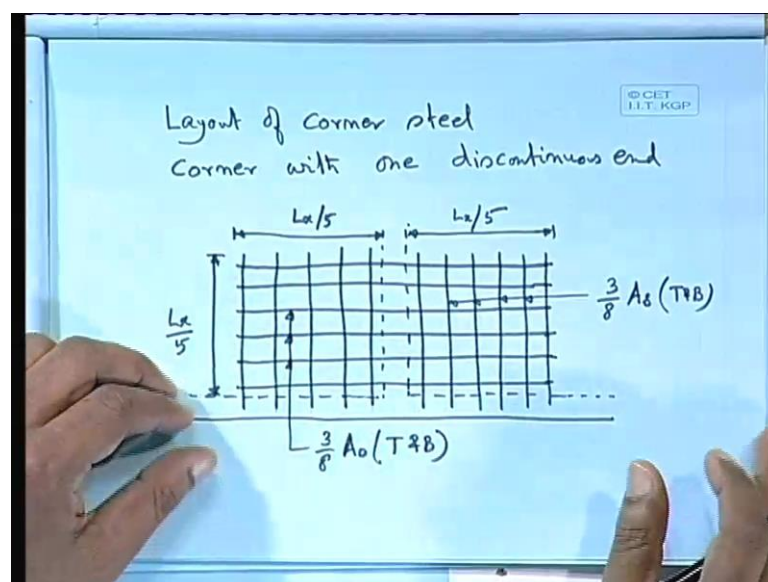 © CET
I.I.T. KGP
Layout of corner steel
Corner with one discontinuous end
Lx/5
Lx/5
Lx/5
3/8 As (T&B)
3/8 As (T&B)